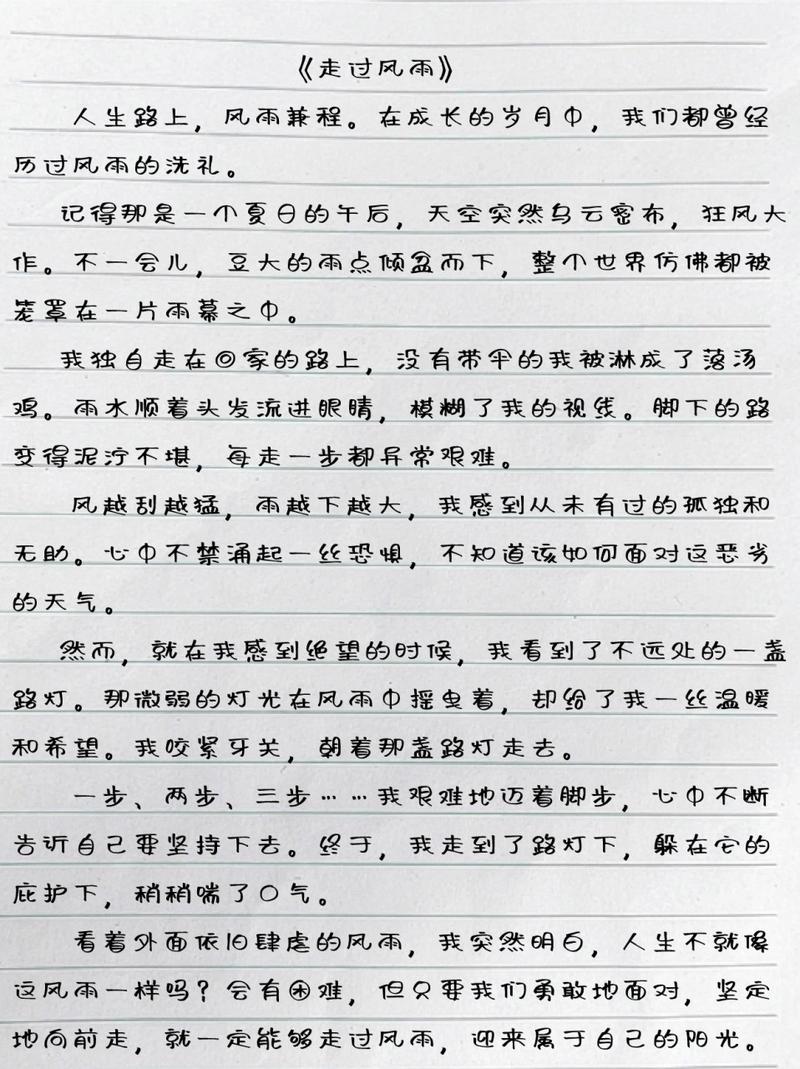 《走过风雨》
人生路上，风雨兼程。在成长的岁月中，我们都曾经
历过风雨的洗礼。
记得那是一个夏日的午后，天空突然乌云密布，狂风大
作。不一会儿，豆大的雨点倾盆而下，整个世界仿佛都被
笼罩在一片雨幕之中。
我独自走在回家的路上，没有带伞的我被淋成了落汤
鸡。雨水顺着头发流进眼睛，模糊了我的视线。脚下的路
变得泥泞不堪，每走一步都异常艰难。
风越刮越猛，雨越下越大，我感到从未有过的孤独和
无助。心中不禁涌起一丝恐惧，不知道该如何面对这恶劣
的天气。
然而，就在我感到绝望的时候，我看到了不远处的一盏
路灯。那微弱的灯光在风雨中摇曳着，却给了我一丝温暖
和希望。我咬紧牙关，朝着那盏路灯走去。
一步、两步、三步……我艰难地迈着脚步，心中不断
告诉自己要坚持下去。终于，我走到了路灯下，躲在它的
庇护下，稍稍喘了口气。
看着外面依旧肆虐的风雨，我突然明白，人生不就像
这风雨一样吗？会有困难，但只要我们勇敢地面对，坚定
地向前走，就一定能够走过风雨，迎来属于自己的阳光。